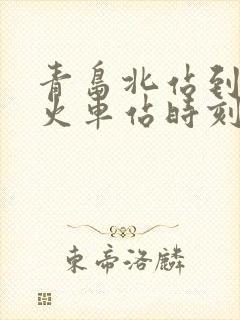 青島北佔到
火車佔時刻
東帝洛麟